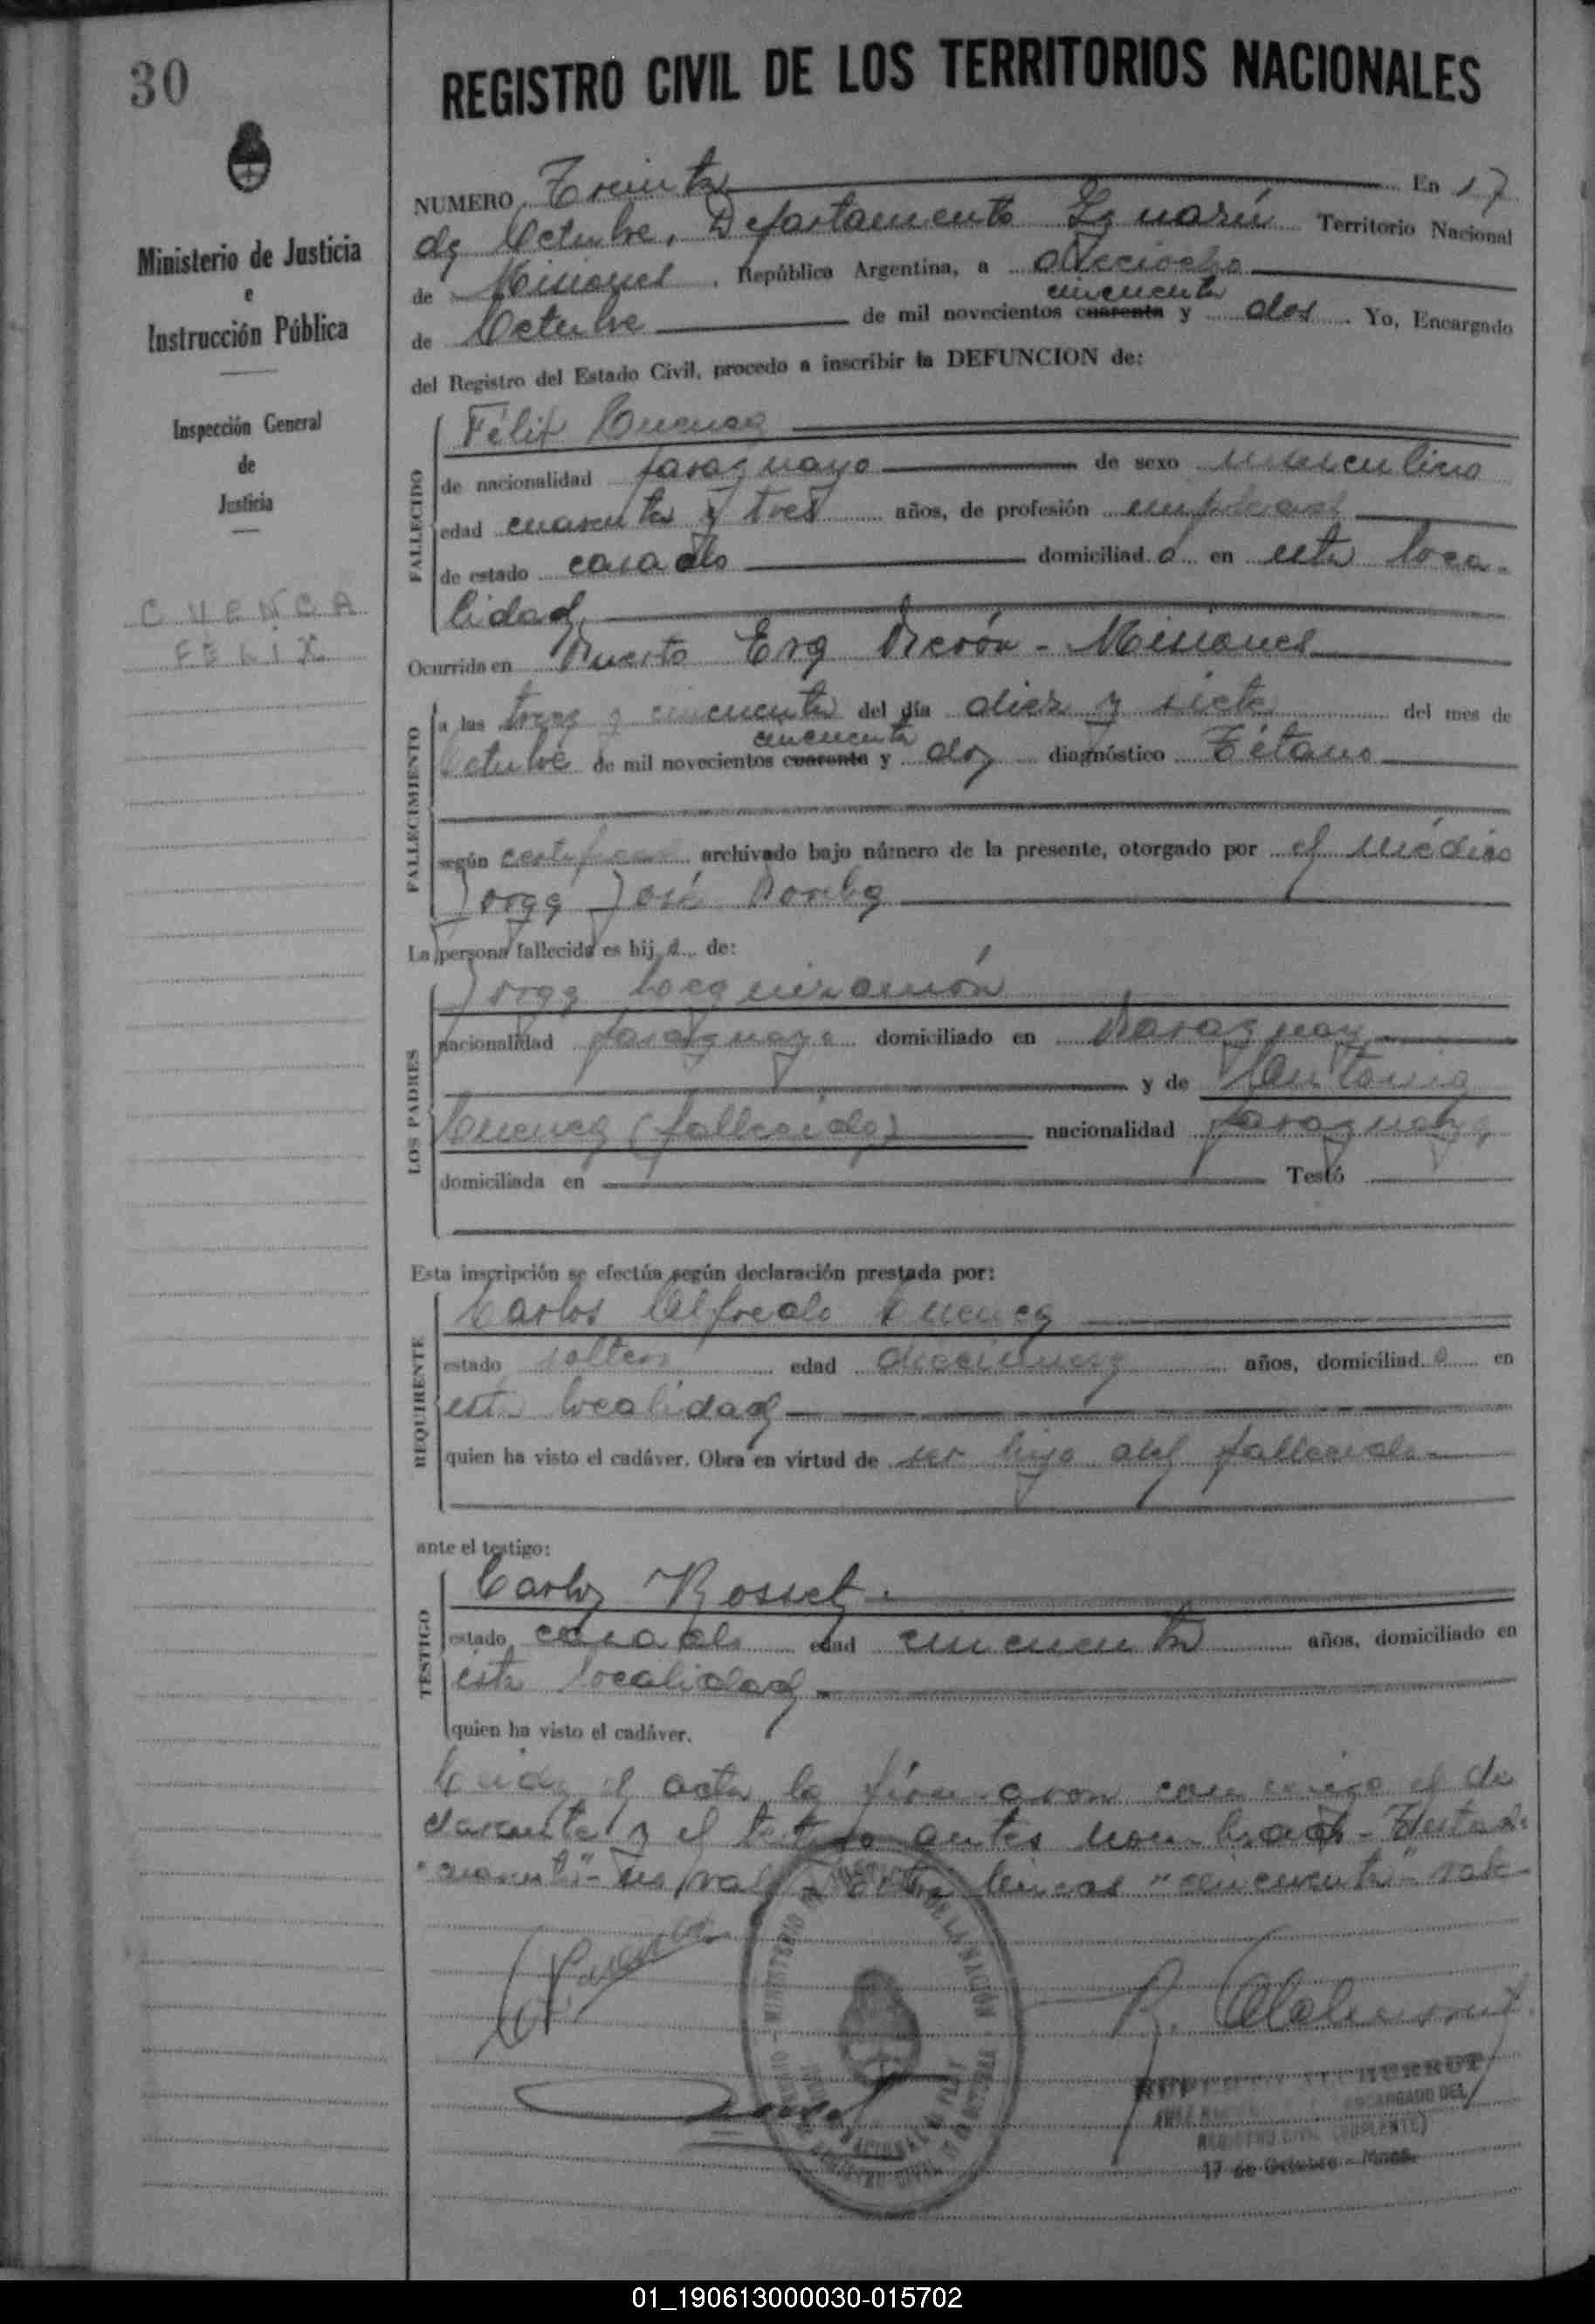 30
REGISTRO CIVIL DE LOS TERRITORIOS NACIONALES
Ministerio de Justicia
e
Instrucción Pública
Inspección General
de
Justicia
CUENCA
FELIX
NUMERO Treinta En 17
de Octubre, Departamento Iguazú Territorio Nacional
de Misiones, República Argentina, a dieciocho
cincuenta
de Octubre de mil novecientos cuarenta y dos. Yo, Encargado
del Registro del Estado Civil, procedo a inscribir la DEFUNCION de:
FALLECIDO
Félix Cuenca
de nacionalidad paraguayo de sexo masculino
edad cuarenta y tres años, de profesión empleado
de estado casado domiciliad o en esta loca-
lidad.
Ocurrida en Puerto Eva Perón - Misiones
FALLECIMIENTO
a las trece y cincuenta del día diez y siete del mes de
cincuenta
Octubre de mil novecientos cuarenta y dos diagnóstico Tétano
según certificado archivado bajo número de la presente, otorgado por el médico
Jorge José
La persona fallecida es hij o de:
LOS PADRES
Jorge
nacionalidad paraguaya domiciliado en Paraguay
y de Antonia
Cuenca (fallecida) nacionalidad paraguaya
domiciliada en Testó
Esta inscripción se efectúa según declaración prestada por:
REQUIRENTE
Carlos Alfredo Cuenca
estado soltero edad diecinueve años, domiciliad o en
esta localidad
quien ha visto el cadáver. Obra en virtud de ser hijo del fallecido
ante el testigo:
TESTIGO
Carlos Rosset
estado casado edad cincuenta años, domiciliado en
esta localidad
quien ha visto el cadáver.
Leida el acta la firmaron conmigo el de
clarante y el testigo antes nombrado - Testado:
"cuarenta" - no vale - Entre lineas "cincuenta" vale
MINISTERIO DE LA NACIÓN
ENCARGADO DEL
REGISTRO CIVIL (SUPLENTE)
17 de Octubre - Mnes.
01_190613000030-015702